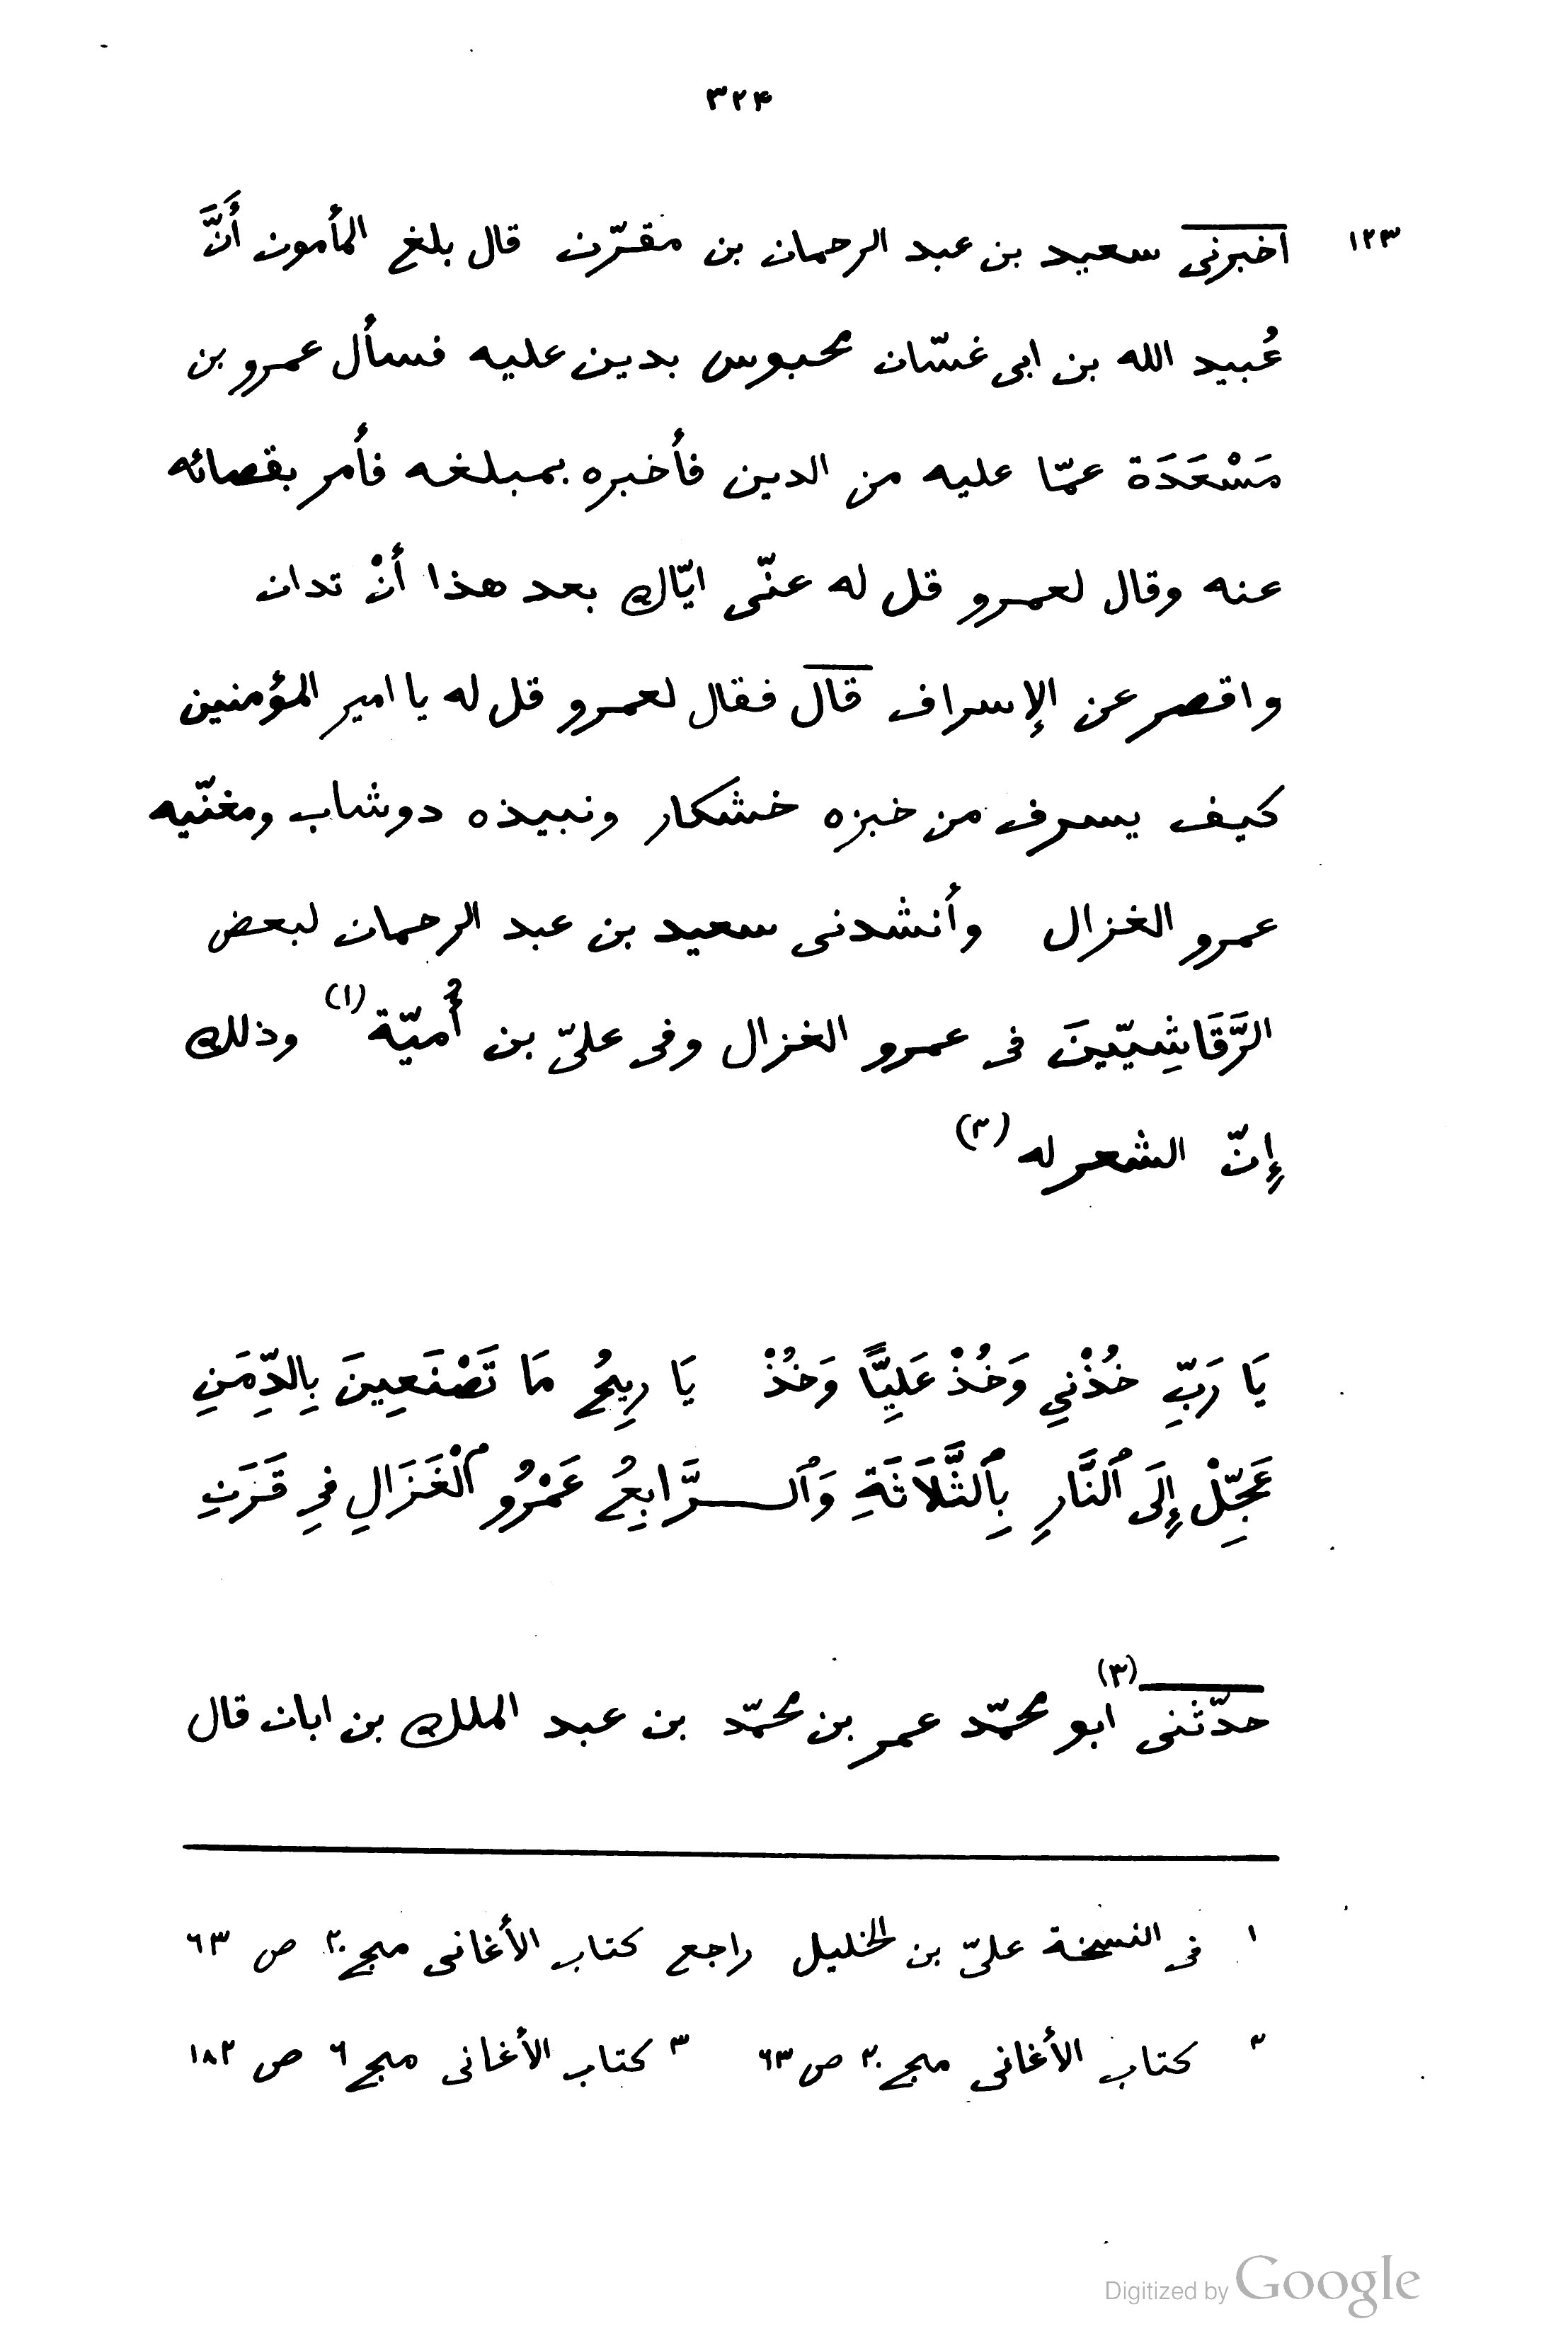 ٣٢۴
١٢٣ اخبرنى سعيد بن عبد الرحمان بن مقرّن قال بلغ المأمون أَنَّ
عُبيد الله بن ابى غسّان محبوس بدين عليه فسأل عمرو بن
مَسْعَدَة عمّا عليه من الدين فأخبره بمبلغه فأمر بقصائه
عنه وقال لعمرو قل له عنّى ايّاك بعد هذا أنْ تدان
واقصر عن الإسراف قال فقال لعمرو قل له يا امير المؤمنين
كيف يسرف من خبزه خشكار ونبيذه دوشاب ومغنّيه
عمرو الغزال وأنشدنى سعيد بن عبد الرحمان لبعض
الرَّقَاشِيّينَ فى عمرو الغزال وفى علىّ بن أُميّة (١) وذلك
إنّ الشعر له (٢)
يَا رَبِّ خُذْنِي وَخُذْ عَلِيًّا وَخُذْ يَا رِيحُ مَا تَصْنَعِينَ بِالدِّمَنِ
عَجِّلْ إِلَى ٱلنَّارِ بِٱلثَّلَاثَةِ وَٱلرَّابِعُ عَمْرُو ٱلْغَزَالِ فِي قَرَنِ
حدّثنى (٣) ابو محمّد عمر بن محمّد بن عبد الملك بن ابان قال
١ فى النسخة علىّ بن الخليل راجع كتاب الأغانى مج ٢٠ ص ٦٣
٢ كتاب الأغانى مج ٢٠ ص ٦٣ ٣ كتاب الأغانى مج ٦ ص ١٨٢
Digitized by Google